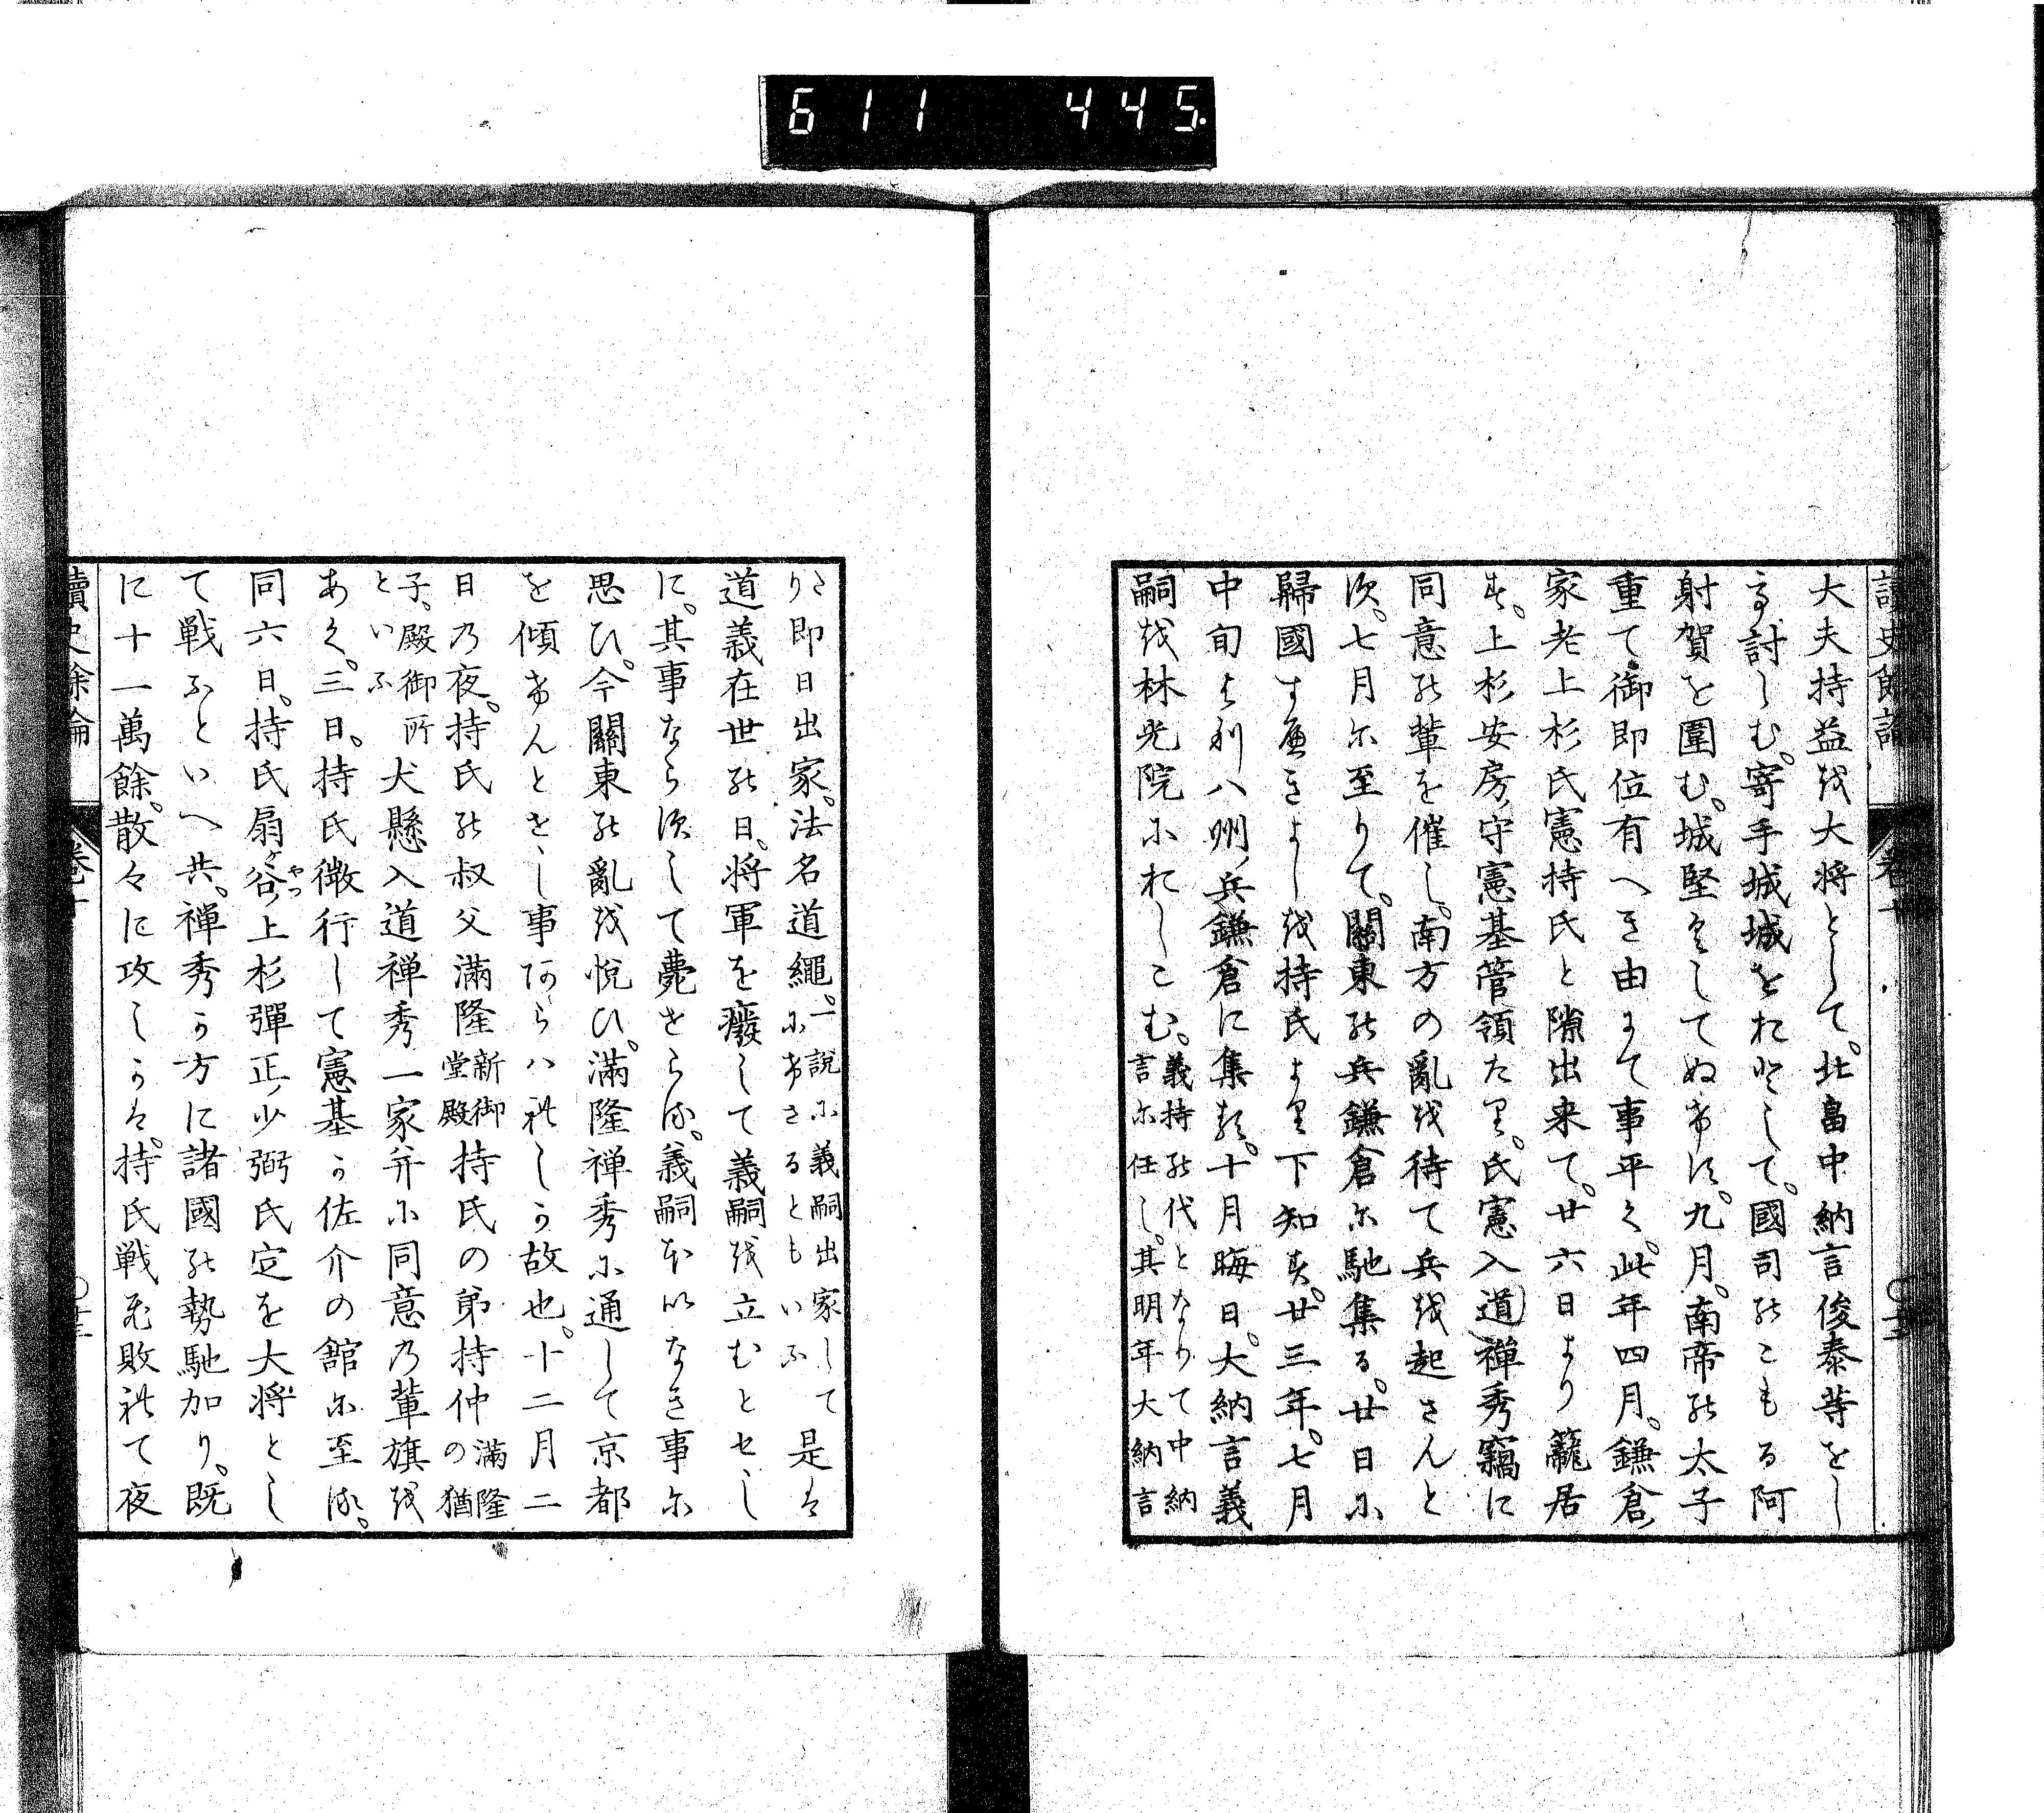 611 445
讀史餘論 卷十
大夫持益を大将として。北畠中納言俊泰等をし
て討しむ。寄手城城をれとして。國司のこもる阿
射賀を圍む。城堅くしてぬけす。九月。南帝の太子
重て御即位有へき由にて事平く。此年四月。鎌倉
家老上杉氏憲持氏と隙出来て。廿六日より籠居
す。上杉安房守憲基管領たり。氏憲入道禅秀竊に
同意の輩を催し。南方の亂を待て兵を起さんと
す。七月に至りて。關東の兵鎌倉に馳集る。廿日に
歸國すへきよしを持氏より下知す。廿三年。七月
中旬より八州兵鎌倉に集る。十月晦日。大納言義
嗣を林光院におしこむ。義持の代となりて中納
言に任し。其明年大納言
さ
り即日出家。法名道繩。一説に義嗣出家して
にけさるともいふ
是は
道義在世の日。将軍を癈して義嗣を立むとせし
に。其事ならすして薨さらる。義嗣本いなき事に
思ひ。今關東の亂を悦ひ。滿隆禅秀に通して京都
を傾けんとせし事あらハれしか故也。十二月二
日乃夜。持氏の叔父滿隆新御
堂殿持氏の弟持仲滿隆
の猶
子。殿御所
といふ犬懸入道禅秀一家并に同意乃輩旗を
あく。三日。持氏微行して憲基か佐介の舘に至る。
同六日。持氏扇谷やつ上杉彈正少弼氏定を大将とし
て戦ふといへ共。禅秀か方に諸國の勢馳加り。既
に十一萬餘。散々に攻しかは。持氏戦ひ敗れて夜
讀史餘論 卷十